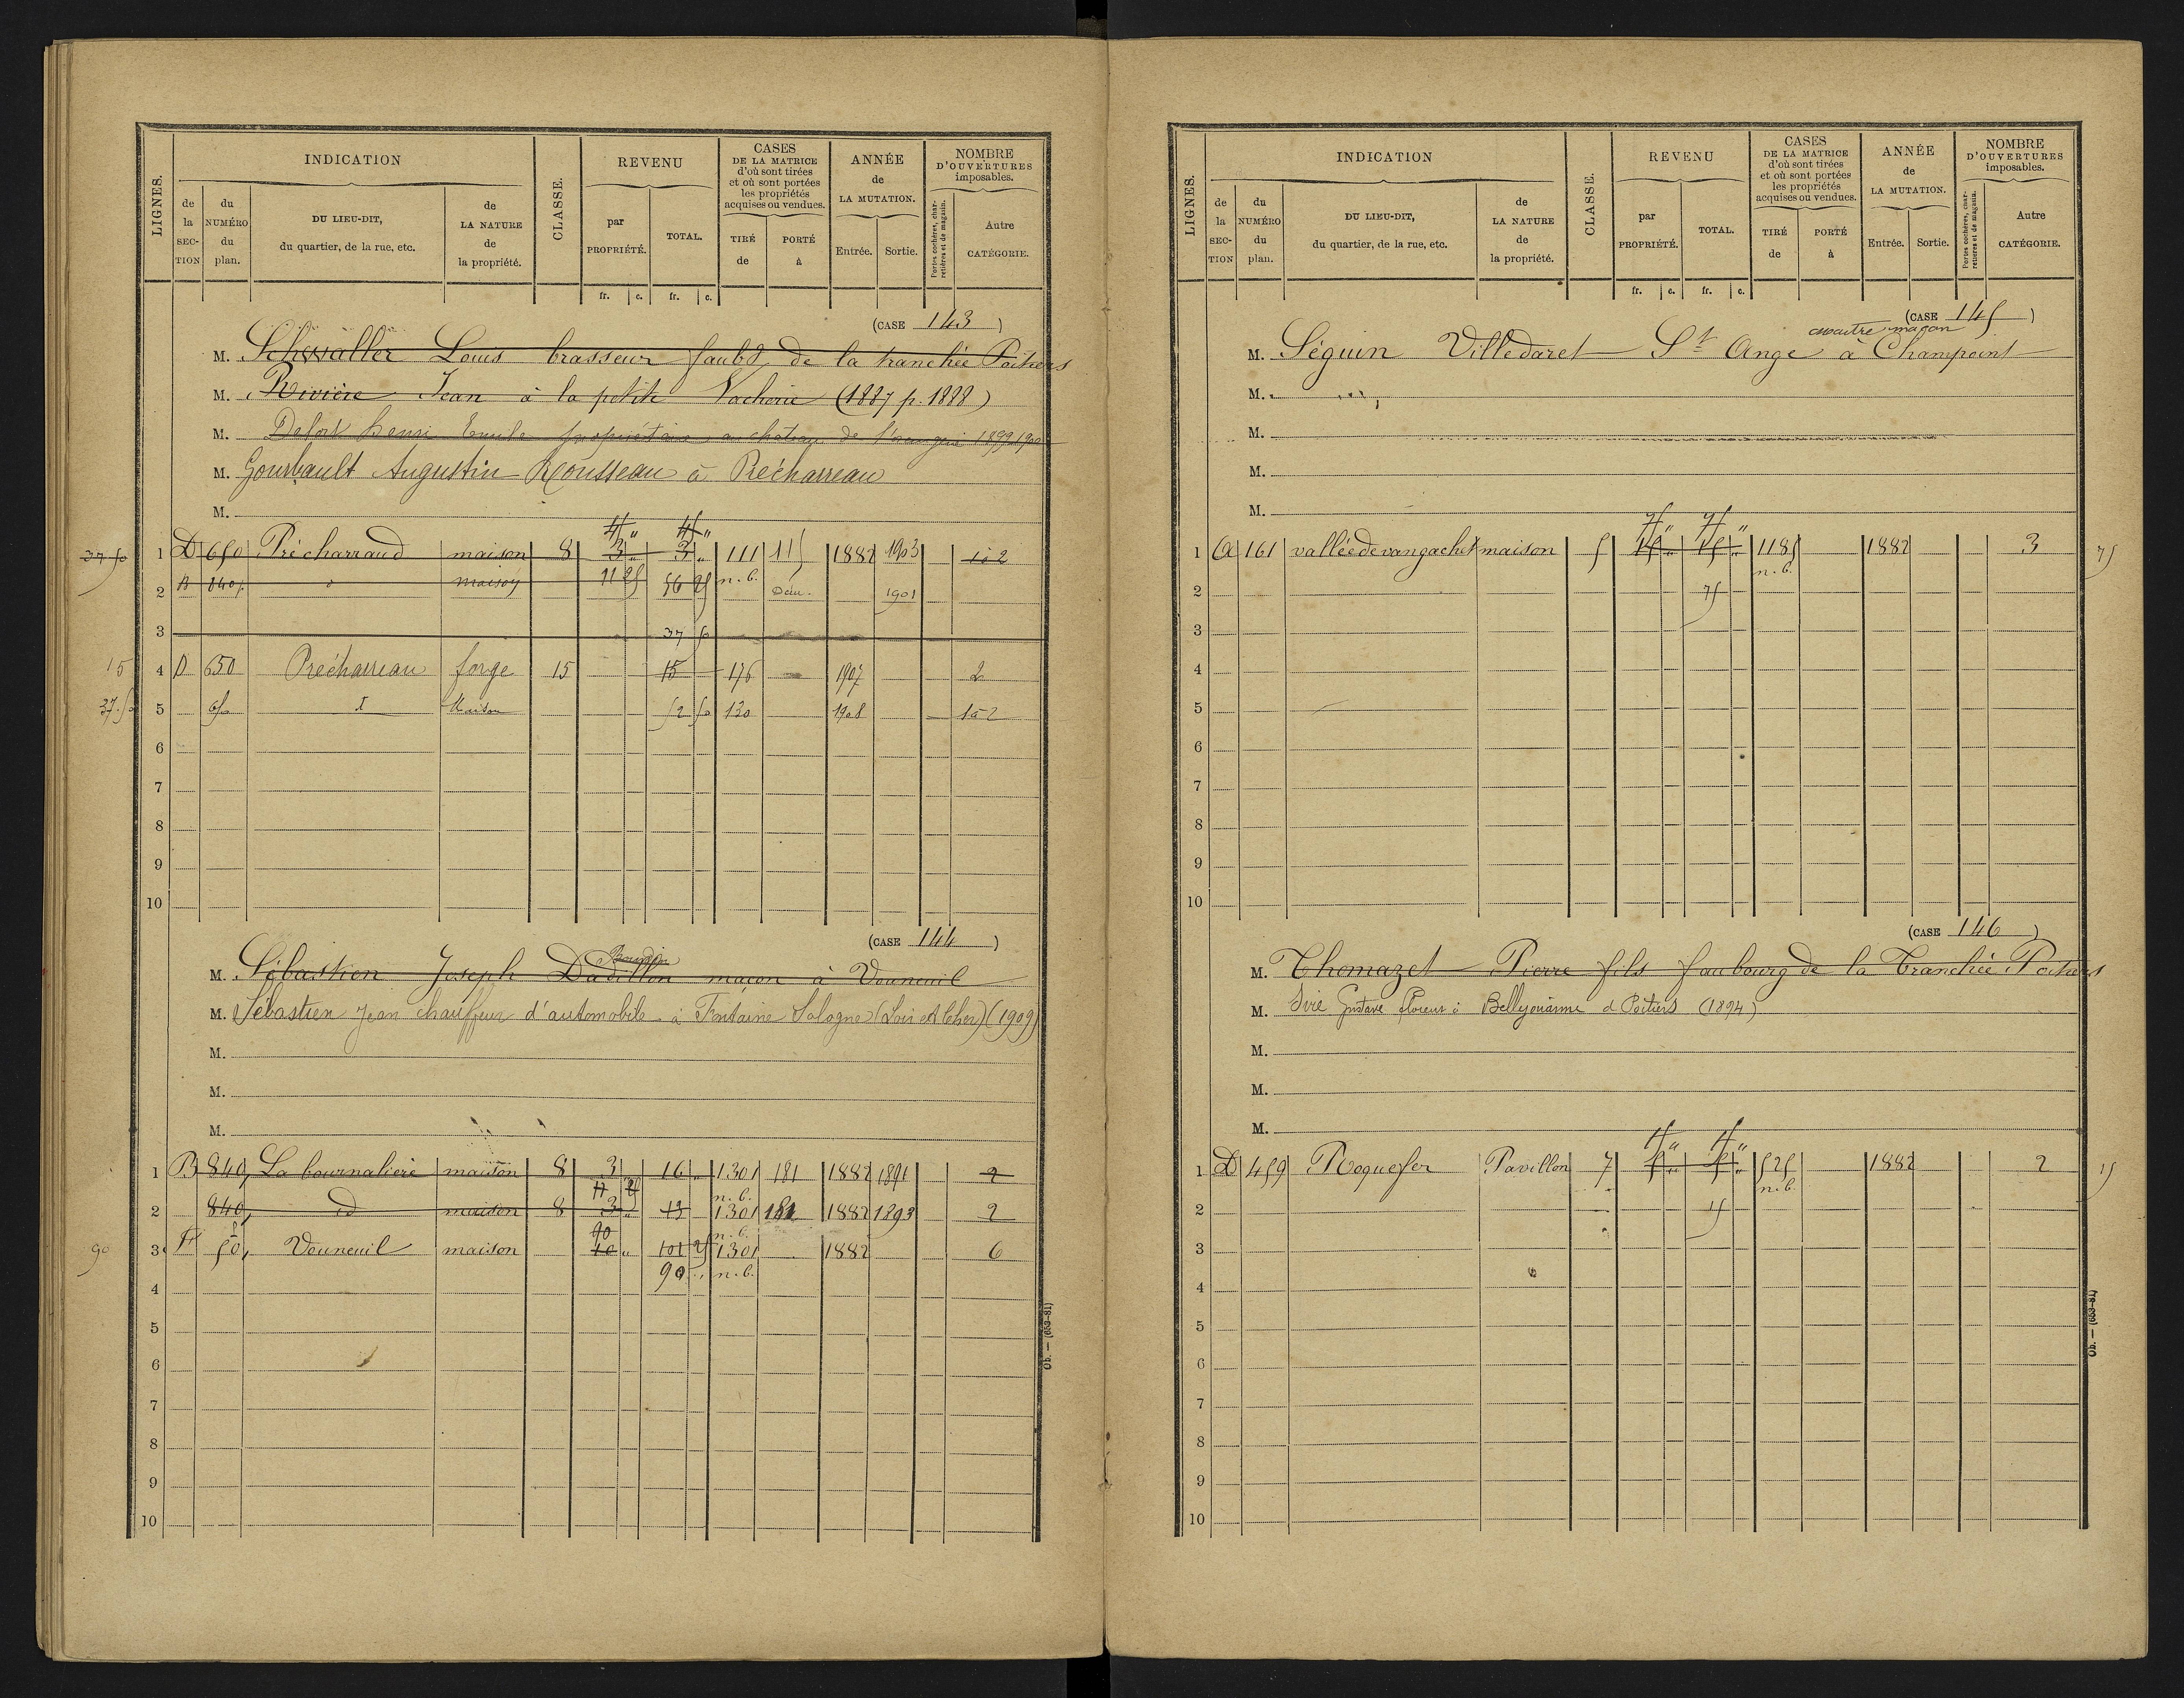 LIGNES.
INDICATION
de la SECTION
du NUMÉRO du plan.
DU LIEU-DIT, du quartier, de la rue, etc.
de LA NATURE de la propriété.
CLASSE.
REVENU
par PROPRIÉTÉ.
TOTAL.
fr. c. fr. c.
CASES DE LA MATRICE d'où sont tirées et où sont portées les propriétés acquises ou vendues.
TIRÉ de
PORTÉ à
ANNÉE de LA MUTATION.
Entrée.
Sortie.
NOMBRE D'OUVERTURES imposables.
Portes cochères, charretières et de magasin.
Autre CATÉGORIE.
(CASE 143)
M. Schwaller Louis brasseur faubg de la tranchée Poitiers
M. Rivière Jean à la petite Vacherie (1887 p. 1888)
M. Delort henri Emile propriétaire au chateau de 1899
M. Gourbault Augustin Rousseau à Précharreau
M.
4f " 4f "
37 50 1 D 650 Précharraud maison 8 3 " 3 " 111 115 1882 1903 1 à 2
2 B 840 d maison 11 25 56 25 n.b. Dém. 1901
3 37 50
15 4 D 650 Précharreau forge 15 15 176 1907 2
37.50 5 650 d Maison 52 50 130 1908 1 à 2
6
7
8
9
10
(CASE 144)
M. Sébastien Joseph Dadillon maçon à Vouneuil
M. Sébastien Jean chauffeur d'automobile à Fontaine Sologne (Loir et Cher) (1909)
M.
M.
M.
1 B 840 La bournalière maison 8 3 16 " 1301 181 1882 1891 2
11 25 n.b.
2 840 id maison 8 3 " 13 1301 181 1882 1893 2
90 n.b.
90 3 F 50 Vouneuil maison 10 " 101 25 1301 1882 6
90 " n.b.
4
5
6
7
8
9
10
Ob. — (653-81)
LIGNES.
INDICATION
de la SECTION
du NUMÉRO du plan.
DU LIEU-DIT, du quartier, de la rue, etc.
de LA NATURE de la propriété.
CLASSE.
REVENU
par PROPRIÉTÉ.
TOTAL.
fr. c. fr. c.
CASES DE LA MATRICE d'où sont tirées et où sont portées les propriétés acquises ou vendues.
TIRÉ de
PORTÉ à
ANNÉE de LA MUTATION.
Entrée.
Sortie.
NOMBRE D'OUVERTURES imposables.
Portes cochères, charretières et de magasin.
Autre CATÉGORIE.
(CASE 145)
maitre maçon
M. Séguin Villedaret St Ange à Champoint
M.
M.
M.
M.
75 " 75 "
1 A 161 vallée de vangachet maison 5 15 " 15 " 1185 1882 3 75
n.b.
2 75
3
4
5
6
7
8
9
10
(CASE 146)
M. Thomazet Pierre fils faubourg de la Tranchée Poitiers
M. Gustave à Bellejouanne d Poitiers (1894)
M.
M.
M.
15 " 15 "
1 D 459 Roquefer Pavillon 7 5 " 5 " 525 1882 2 15
n.b.
2 15
3
4
5
6
7
8
9
10
Ob. — (653-81)